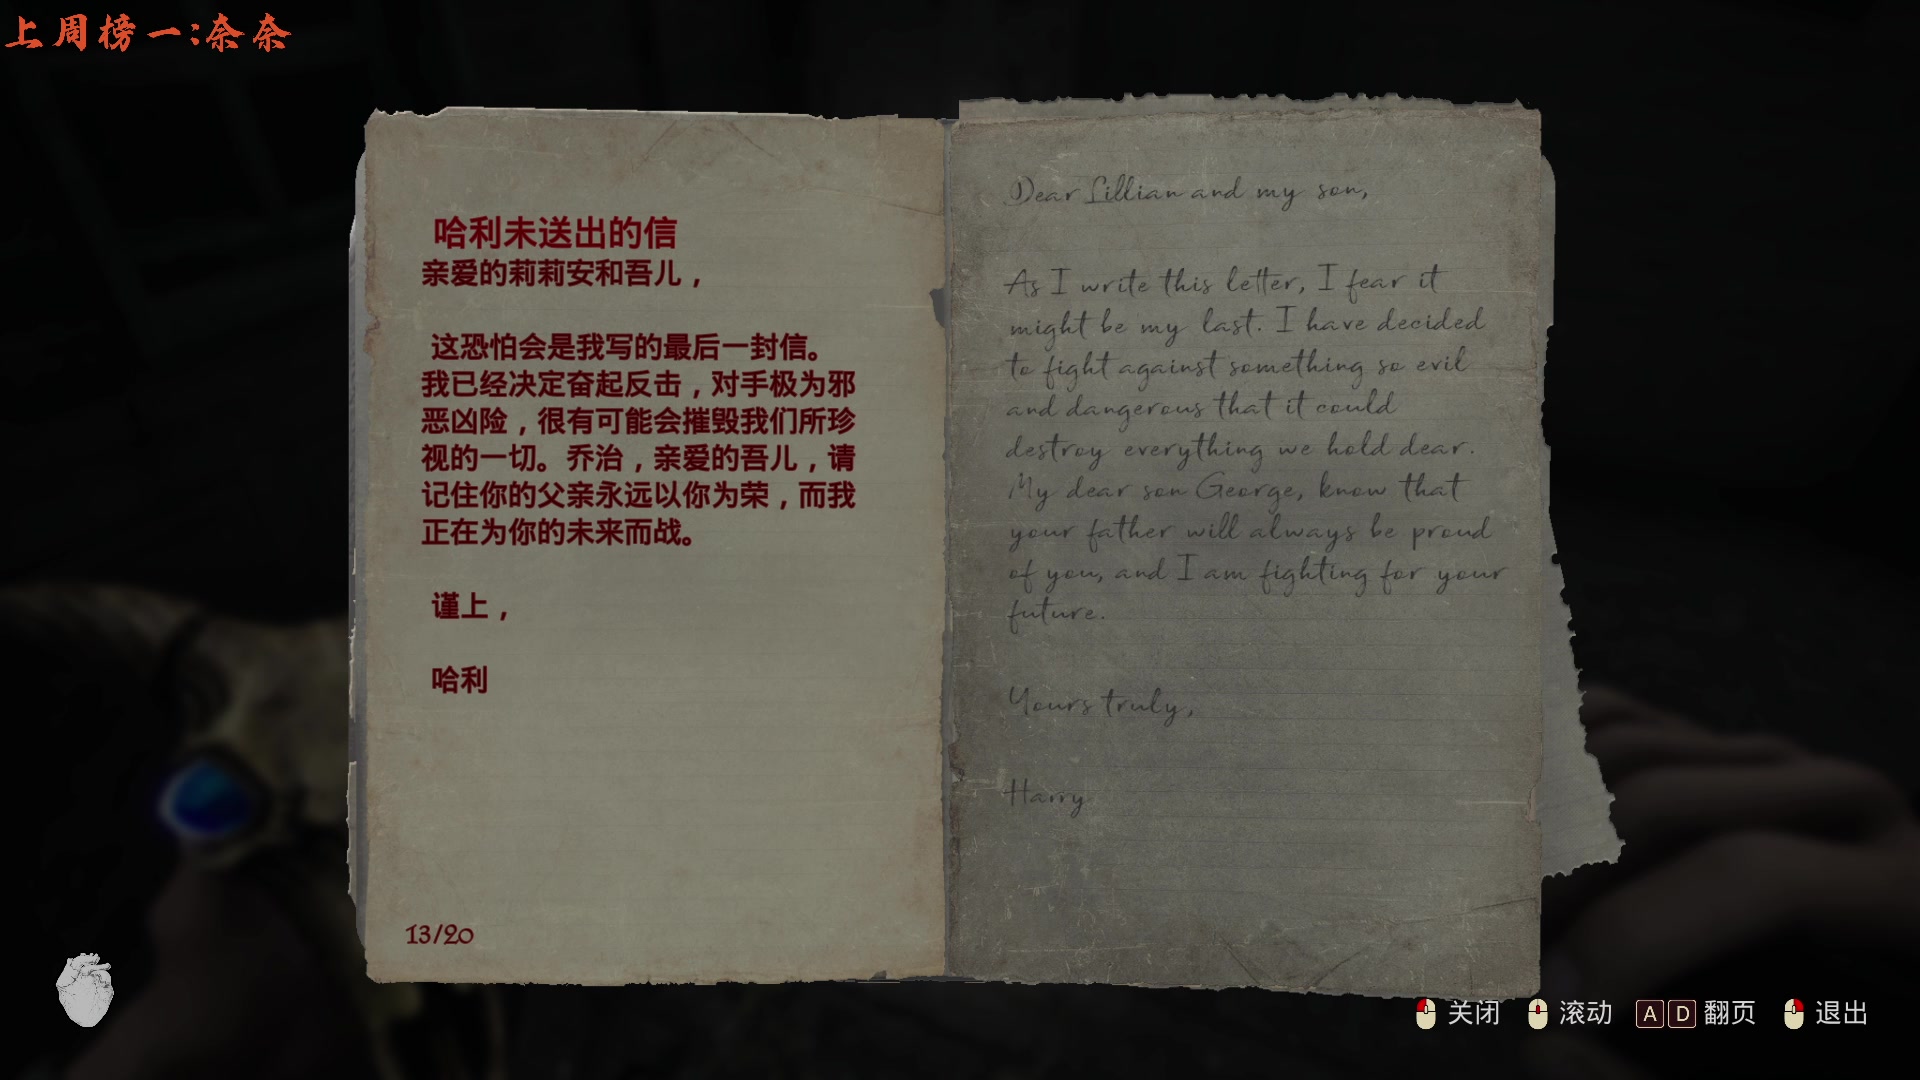 上周榜一:奈奈
哈利未送出的信
亲爱的莉莉安和吾儿，
这恐怕会是我写的最后一封信。
我已经决定奋起反击，对手极为邪
恶凶险，很有可能会摧毁我们所珍
视的一切。乔治，亲爱的吾儿，请
记住你的父亲永远以你为荣，而我
正在为你的未来而战。
谨上，
哈利
13/20
Dear Lillian and my son,
As I write this letter, I fear it
might be my last. I have decided
to fight against something so evil
and dangerous that it could
destroy everything we hold dear.
My dear son George, know that
your father will always be proud
of you, and I am fighting for your
future.
Yours truly,
Harry
关闭 滚动 A D 翻页 退出